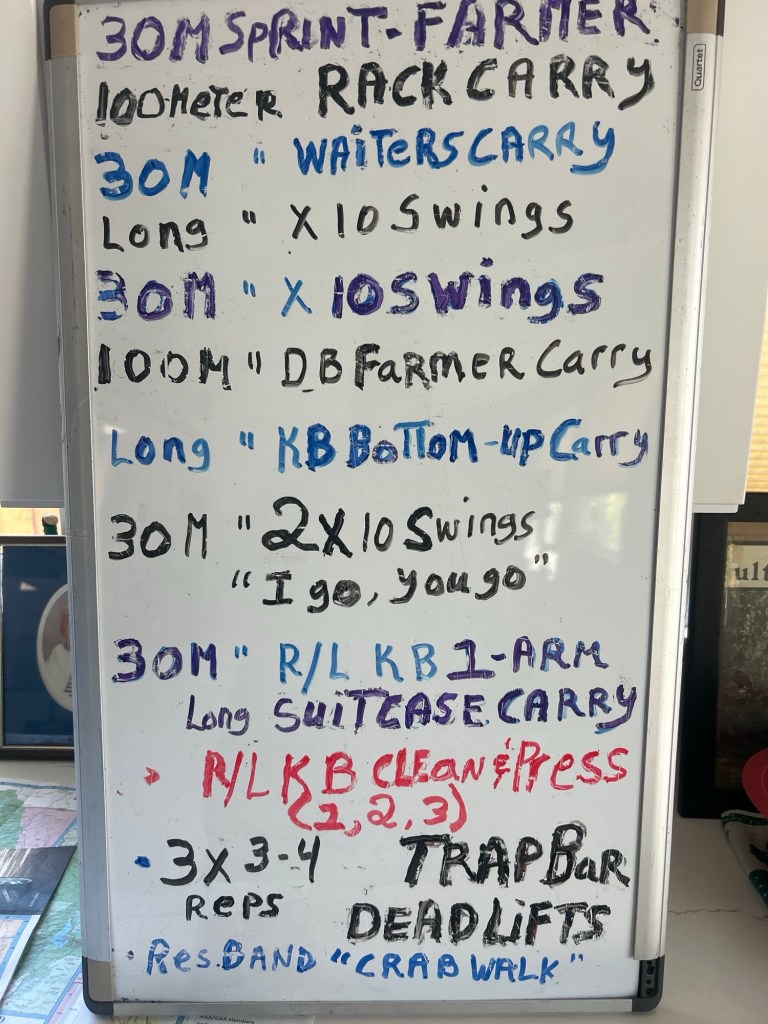 30M SPRINT-FARMER
100 Meter RACK CARRY
30M " WAITERS CARRY
Long " X 10 Swings
30M " X 10 Swings
100M " DB FARMER Carry
Long " KB BOTTOM-UP Carry
30M " 2X10 Swings
"I go, you go"
30M " R/L KB 1-ARM
Long SUITCASE CARRY
> R/L KB CLEAN & Press
(1, 2, 3)
• 3x 3-4 TRAP Bar
Reps DEADLiFTS
• Res. BAND "CRAB WALK"
Quartet
ult